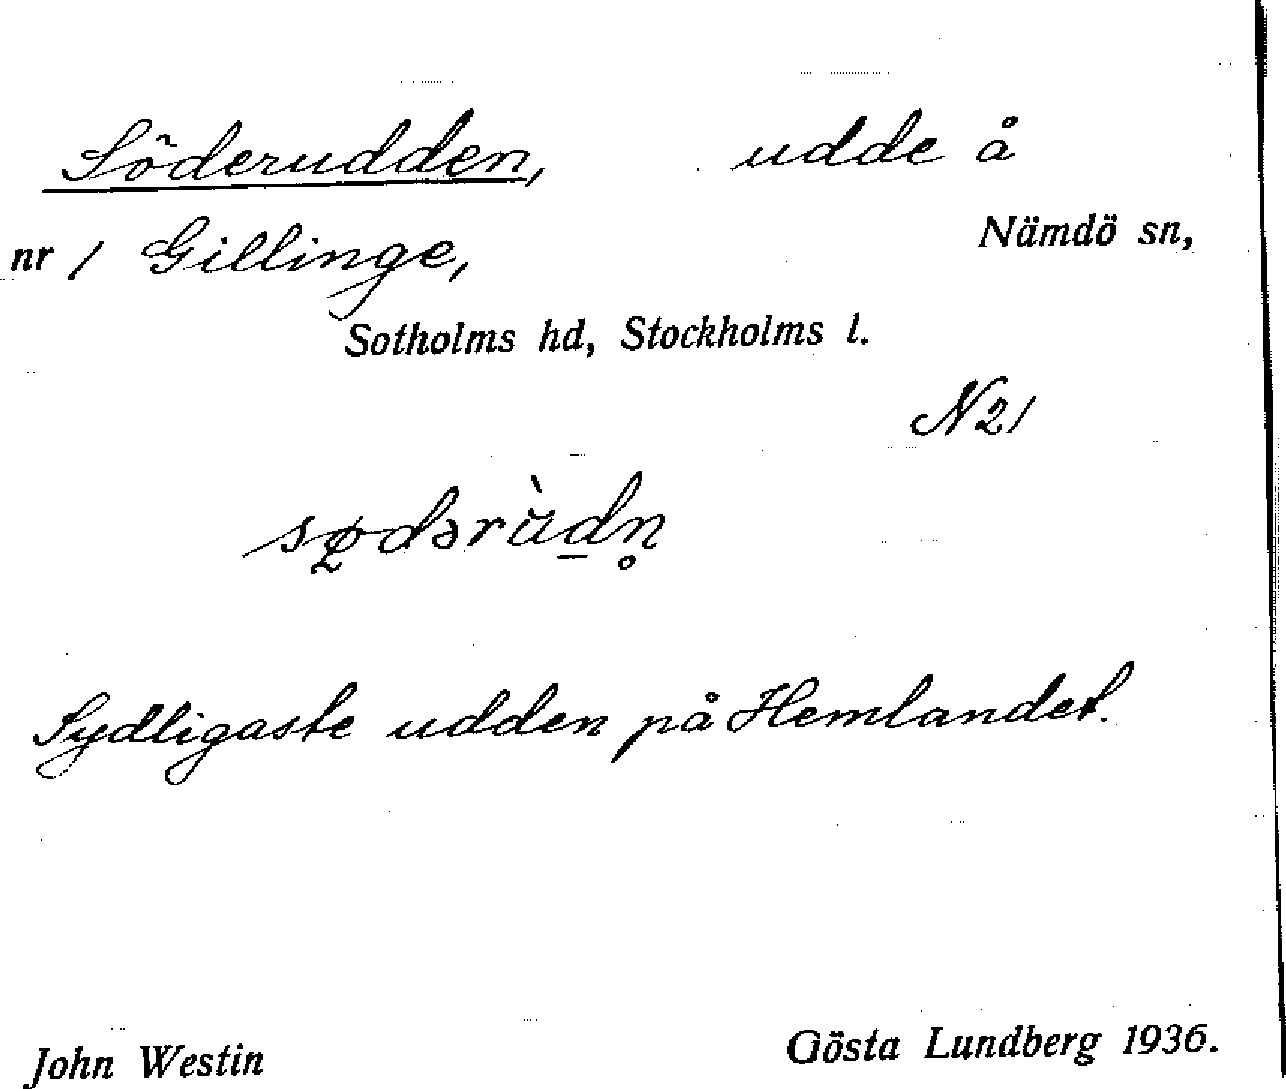 Söderudden, udde å
nr 1 Gillinge, Nämdö sn,
Sotholms hd, Stockholms l.
N21
sødərùd̲n̥
Sydligaste udden på Hemlandet.
John Westin Gösta Lundberg 1936.